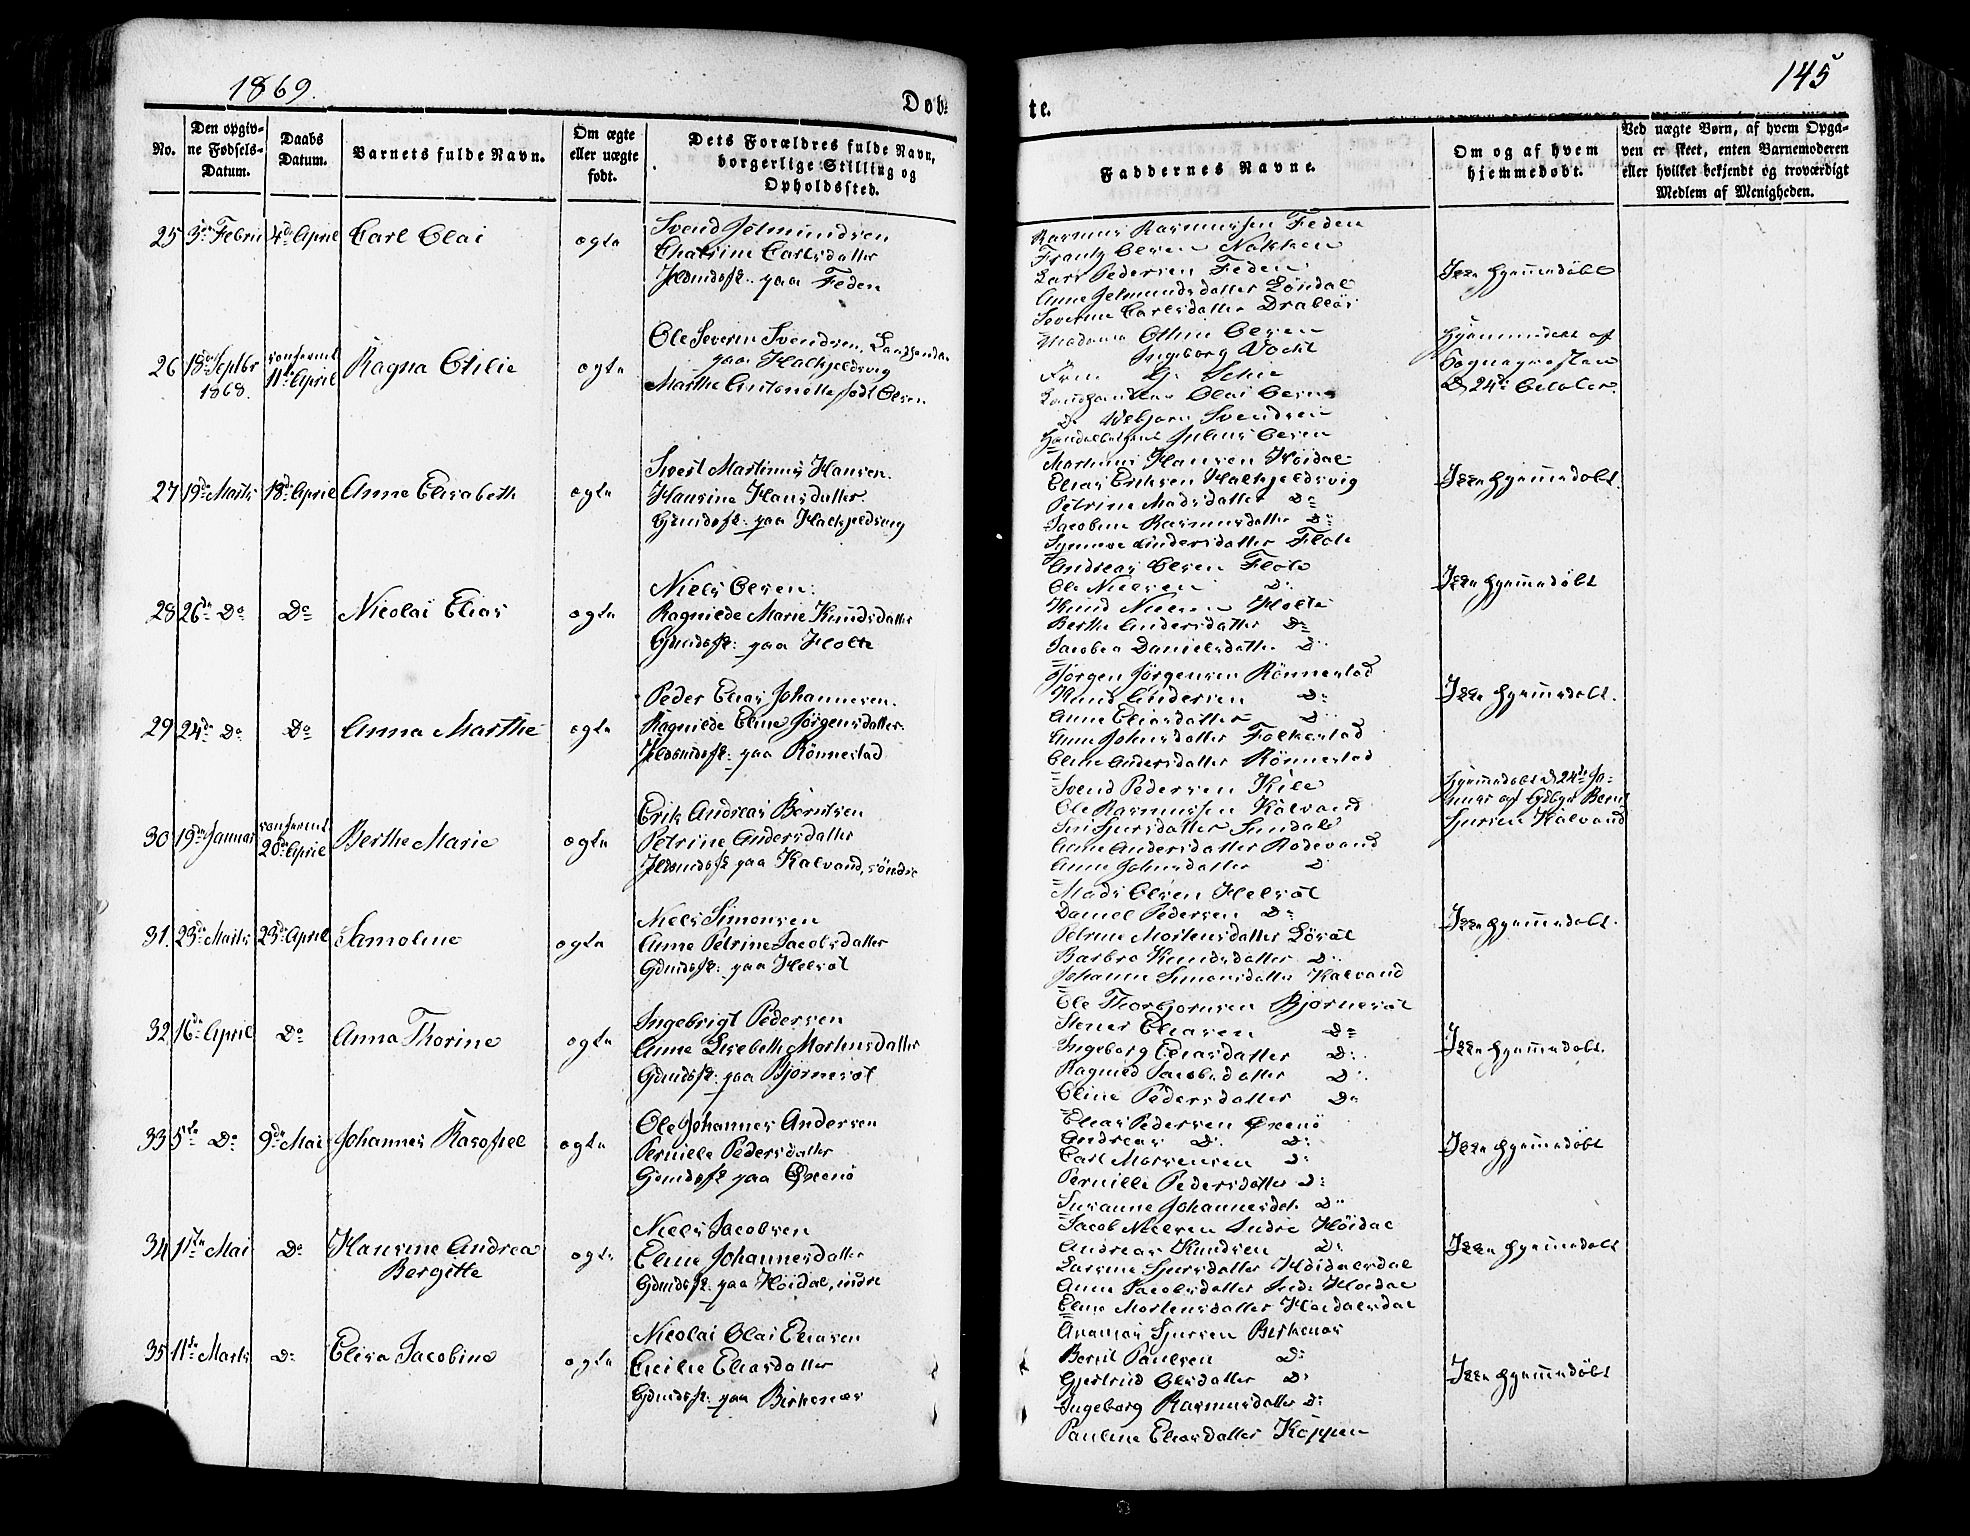 1869.
145
Døb-
te.
No.
Den opgiv-
ne Fødsels-
Datum.
Daabs
Datum.
Barnets fulde Navn.
Om ægte
eller uægte
født.
Dets Forældres fulde Navn,
borgerlige Stilling og
Opholdssted.
Faddernes Navne.
Om og af hvem
hjemmedøbt.
Ved uægte Børn, af hvem Opga-
ven er skeet, enten Barnemoderen
eller hvilket bekjendt og troværdigt
Medlem af Menigheden.
25 3die Febru 4de April Carl Olai ægte
Svend Jetmundsen
Chatrine Carlsdatter
Huusmdsfk. paa Feden
Rasmus Rasmussen Feden
Frantz Olsen Nakken
Lars Pedersen Feden
Anne Jetmundsdatter Løndal
Severine Carlsdatter Drabløs
Ikke hjemmedøbt
26 18de Septbr 1868. confirmt 11te April Ragna Otilie ægte
Ole Severin Svendsen, Landhandler
paa Halkjeldsvig
Marthe Antonette født Olsen
Madame Oline Olsen
Ingeborg Vocht
Frue G. Schie
Landhandler Olai Olsen
Do Vebjørn Svendsen
Handelbetjent Julius Olsen
Hjemmedøbt af
Sognepresten
d 24de October
27 19de Marts 18de April Anne Elisabeth ægte
Sivert Martinus Hansen
Hansine Hansdatter
Gdmdsfk: paa Halkjeldsvig
Martinus Hansen Høidal
Elias Eriksen Halkjeldsvig
Petrine Madsdatter Do
Jacobine Rasmusdatter Do
Synneve Andersdatter Flote
Ikke hjemmedøbt.
28 26de Do Do Nicolai Elias ægte
Niels Olsen
Ragnilde Marie Knudsdatter
Gdmdsfk: paa Holte
Andreas Olsen Flote
Ole Nielsen Do
Knud Nielsen Holte
Berthe Andersdatter Do
Jacobea Danielsdatter Do
Ikke hjemmedøbt
29 24de Do Do Anna Marthe ægte
Peder Elias Johannesen
Ragnilde Eline Jørgensdatter
Huusmdsfk: paa Rønnestad
Jørgen Jørgensen Rønnestad
Knud Andersen Do
Anne Eliasdatter Do
Anne Johnsdatter Folkestad
Oline Andersdatter Rønnestad
Ikke hjemmedøbt.
30 19de Januar confirmt 20de April Berthe Marie ægte
Erik Andreas Berntsen
Petrine Andersdatter
Huusmdsfk paa Kalvand, søndre
Svend Pedersen Kile
Ole Rasmussen Kalvand
Siri Sjursdatter Sundal
Anne Andersdatter Rødevand
Anne Johnsdatter Do
Hjemmedøbt d 24de Ja-
nuar af Gdbgr Bernt
Sjursen Kalvand
31. 23de Marts 23de April Samoline ægte
Niels Simonsen
Anne Petrine Jacobsdatter
Gdmdsfk: paa Helsøt
Mads Olsen Helsøt
Daniel Pedersen Do
Petrine Mortensdatter Løsæt
Barbro Knudsdatter Do
Johanne Simonsdatter Kalvand
Ikke hjemmedøbt.
32 16de April Do Anna Thorine ægte
Ingebrigt Pedersen
Anne Lisebeth Mortensdatter
Gdmdsfk: paa Bjørnesøt
Ole Thorbjørnsen Bjørnesøt
Stener Eliasen Do
Ingeborg Eliasdatter Do
Ragnild Jacobsdatter Do
Oline Pedersdatter Do
Ikke hjemmedøbt.
33 5te Do 9de Mai Johannes Kasofiel ægte
Ole Johannes Andersen
Pernille Pedersdatter
Gdmdsfk paa Ørenø
Elias Pedersen Ørenø
Andreas Do Do
Carl Mortensen Do
Pernille Pedersdatter Do
Susanne Johannesdtr. Do
Ikke hjemmedøbt
34 1ste Mai Do Hansine Andrea
Bergitte ægte
Niels Jacobsen
Eline Johannesdatter
Gdmdsfk: paa Høidal, indre
Jacob Nielsen Indre Høidal
Andreas Knudsen Do
Larsine Sjursdatter Høidalsdal
Anne Jacobsdatter Indr Høidal
Eline Mortensdatter Høidalsdal
Ikke hjemmedøbt
35 11te Marts Do Elisa Jacobine ægte
Nicolai Olai Eliasen
Cecilie Eliasdatter
Gdmdsfk: paa Birkenæs
Ananias Sjursen Berkenæs
Bernt Paulsen Do
Gjertrud Olsdatter Do
Ingeborg Rasmusdatter Do
Pauline Eliasdatter Køppen
Ikke hjemmedøbt